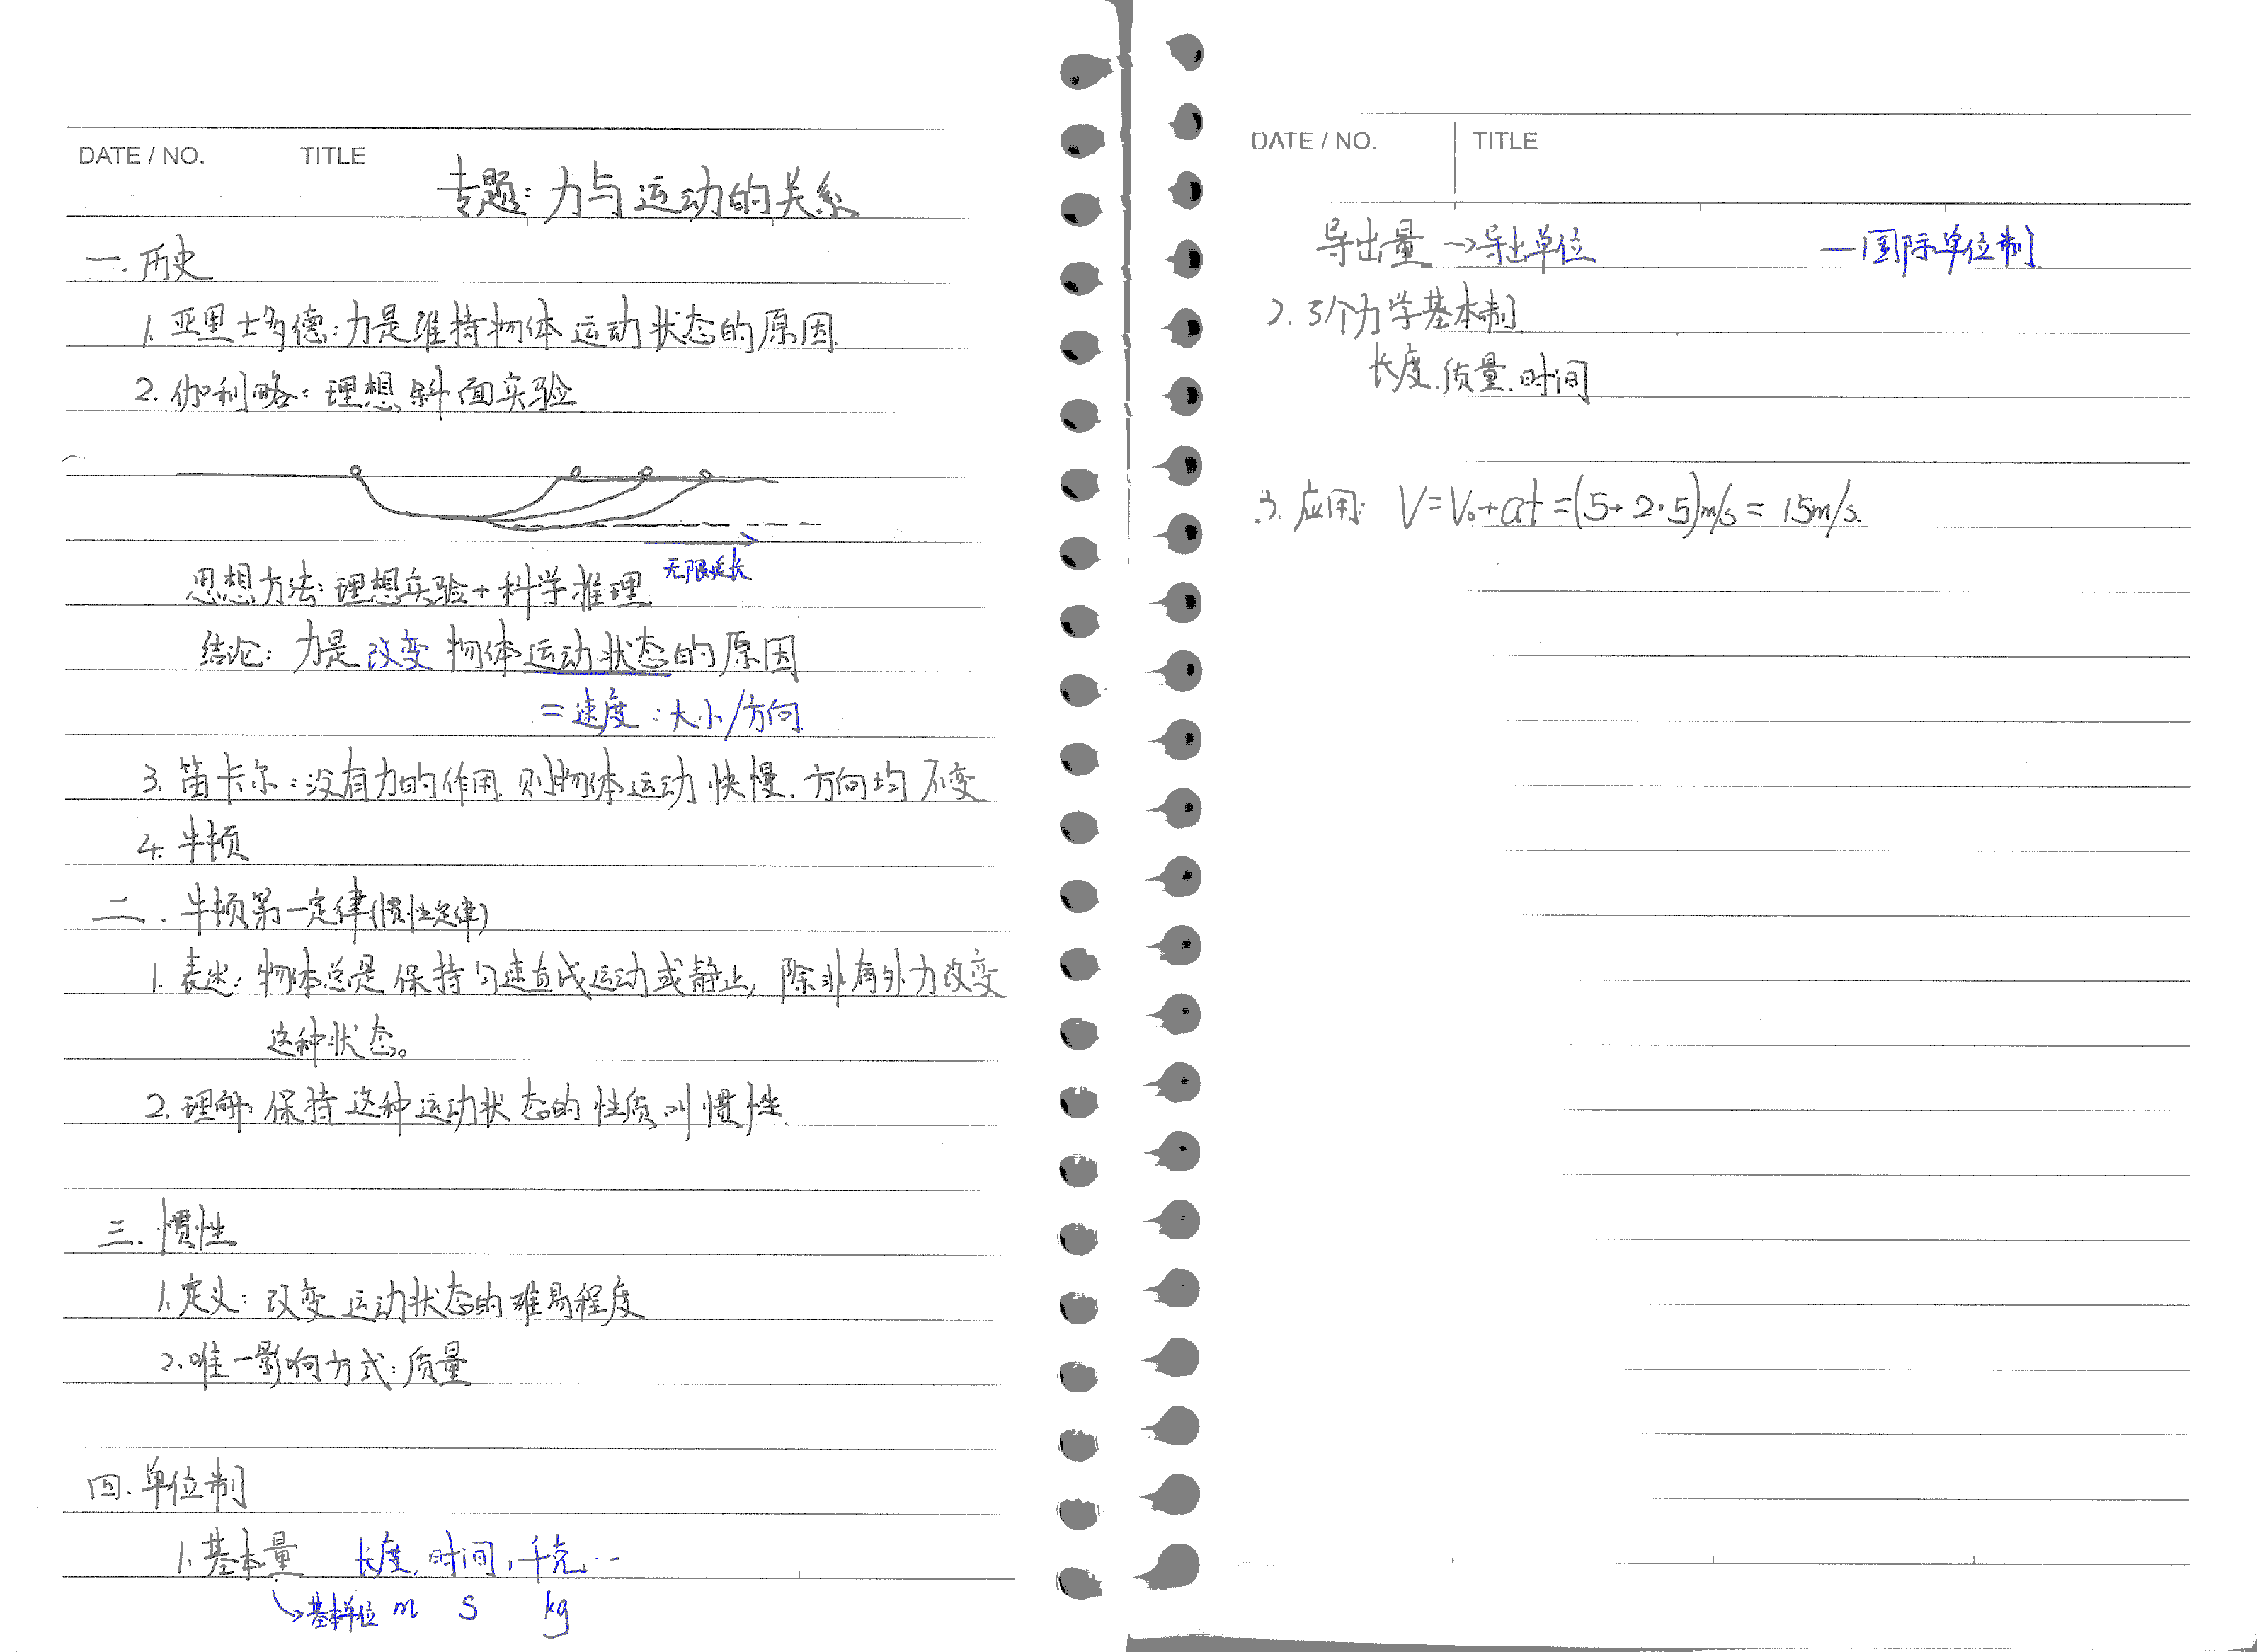 DATE / NO. TITLE
专题:力与运动的关系
一.历史
1.亚里士多德:力是维持物体运动状态的原因.
2.伽利略:理想斜面实验
无限延长
思想方法:理想实验+科学推理
结论:力是改变物体运动状态的原因
=速度:大小/方向
3.笛卡尔:没有力的作用.则物体运动快慢.方向均不变
4.牛顿
二.牛顿第一定律(惯性定律)
1.表述:物体总是保持匀速直线运动或静止,除非有外力改变
这种状态。
2.理解:保持这种运动状态的性质叫惯性.
三.惯性
1.定义:改变运动状态的难易程度
2.唯一影响方式:质量
四.单位制
1.基本量 长度,时间,千克...
→基本单位 m s kg
DATE / NO. TITLE
导出量→导出单位 —国际单位制
2.3个力学基本制
长度.质量.时间
3.应用: V=V₀+at=(5+2·5)m/s=15m/s.